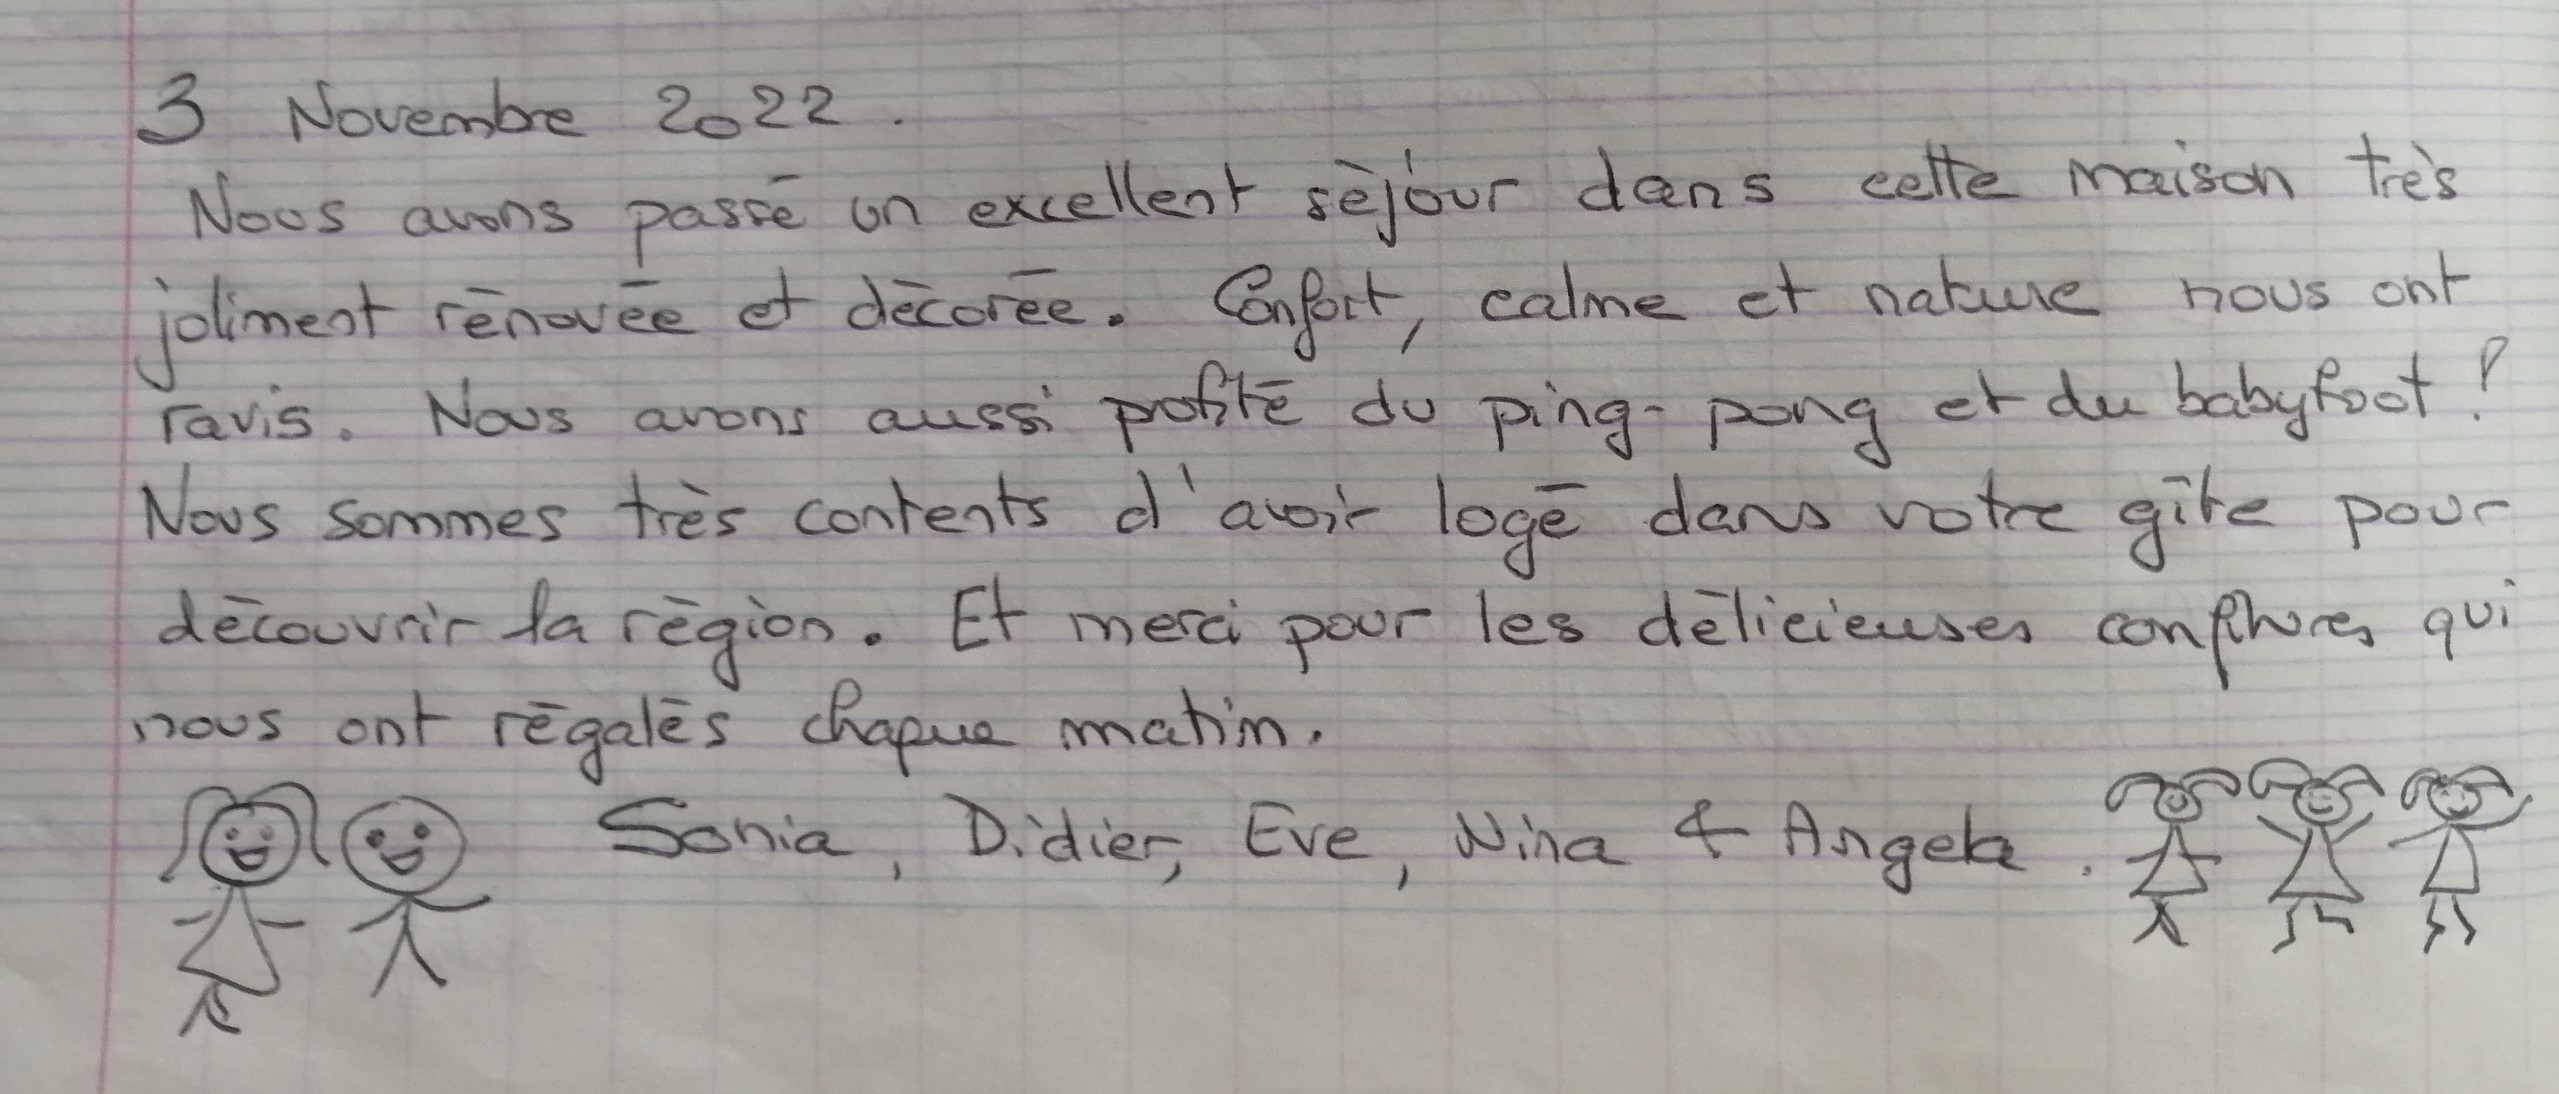 3 Novembre 2022.
Nous avons passé un excellent séjour dans cette maison très
joliment rénovée et décorée. Confort, calme et nature nous ont
ravis. Nous avons aussi profité du ping-pong et du babyfoot !
Nous sommes très contents d'avoir logé dans votre gîte pour
découvrir la région. Et merci pour les délicieuses confitures qui
nous ont régalés chaque matin.
Sonia, Didier, Eve, Nina & Angela.